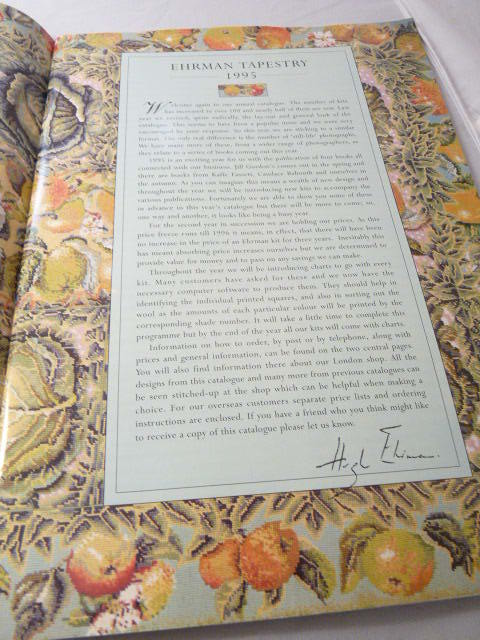 EHRMAN TAPESTRY
1995
Welcome again to our annual catalogue. The number of kits
has increased to over 100 and nearly half of them are new. Last
year we revised, quite radically, the lay-out and general look of the
catalogue. This seems to have been a popular move and we were very
encouraged by your response. So this year we are sticking to a similar
format. The only real difference is the number of 'still-life' photographs.
We have many more of these, from a wider range of photographers, as
they relate to a series of books coming out this year.
1995 is an exciting year for us with the publication of four books all
connected with our business. Jill Gordon's comes out in the spring and
there are books from Kaffe Fassett, Candace Bahouth and ourselves in
the autumn. As you can imagine this means a wealth of new design and
throughout the year we will be introducing new kits to accompany the
various publications. Fortunately we are able to show you some of these
in advance in this year's catalogue but there will be more to come; so,
one way and another, it looks like being a busy year.
For the second year in succession we are holding our prices. As this
price freeze runs till 1996 it means, in effect, that there will have been
no increase in the price of an Ehrman kit for three years. Inevitably this
has meant absorbing price increases ourselves but we are determined to
provide value for money and to pass on any savings we can make.
Throughout the year we will be introducing charts to go with every
kit. Many customers have asked for these and we now have the
necessary computer software to produce them. They should help in
identifying the individual printed squares, and also in sorting out the
wool as the amounts of each particular colour will be printed by the
corresponding shade number. It will take a little time to complete this
programme but by the end of the year all our kits will come with charts.
Information on how to order, by post or by telephone, along with
prices and general information, can be found on the two central pages.
You will also find information there about our London shop. All the
designs from this catalogue and many more from previous catalogues can
be seen stitched-up at the shop which can be helpful when making a
choice. For our overseas customers separate price lists and ordering
instructions are enclosed. If you have a friend who you think might like
to receive a copy of this catalogue please let us know.
Hugh Ehrman.